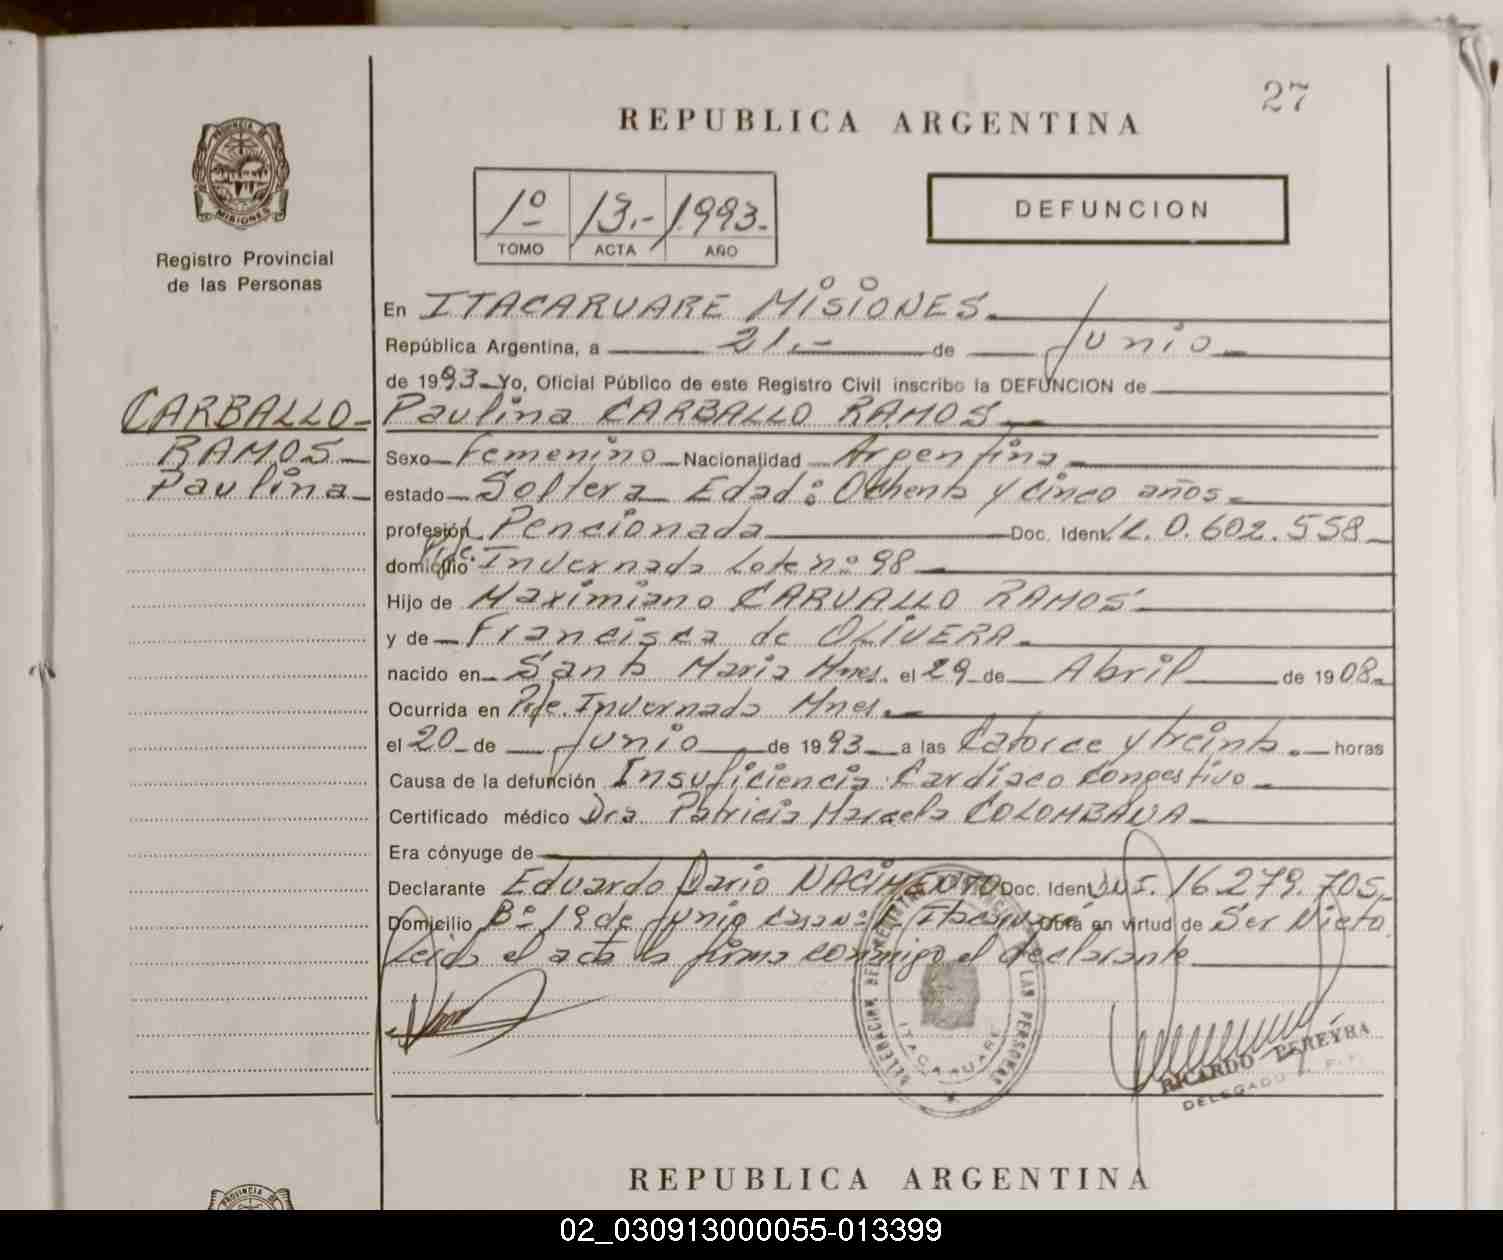 27
REPUBLICA ARGENTINA
PROVINCIA DE
MISIONES
1º 13.- 1993.-
TOMO ACTA AÑO
DEFUNCION
Registro Provincial
de las Personas
En ITACARUARE MISIONES.
República Argentina, a 21.- de Junio
de 1993 Yo, Oficial Público de este Registro Civil inscribo la DEFUNCION de
CARBALLO
RAMOS
Paulina
Paulina CARBALLO RAMOS
Sexo Femenino Nacionalidad Argentina
estado Soltera Edad: Ochenta y cinco años
profesión Pencionada Doc. Ident. L.C. 0.602.558
domicilio Pje. Invernada Lote nº 98
Hijo de Maximiano CARVALLO RAMOS
y de Francisca de OLIVERA
nacido en Santa Maria Mnes. el 29 de Abril de 1908
Ocurrida en Pje. Invernada Mnes.
el 20 de Junio de 1993 a las Catorce y treinta. horas
Causa de la defunción Insuficiencia Cardiaco Congestivo
Certificado médico Dra Patricia Marcela COLOMBANA
Era cónyuge de
Declarante Eduardo Dario NACIMENTO Doc. Ident. DNI. 16.279.705
Domicilio Bº 19 de Junio Casa nº Itacaruaré Obra en virtud de Ser Nieto
Leida el acta la firma conmigo el declarante
DELEGACION DEL REGISTRO PROVINCIAL DE LAS PERSONAS
ITACARUARE
RICARDO PEREYRA
DELEGADO
REPUBLICA ARGENTINA
PROVINCIA DE
02_030913000055-013399